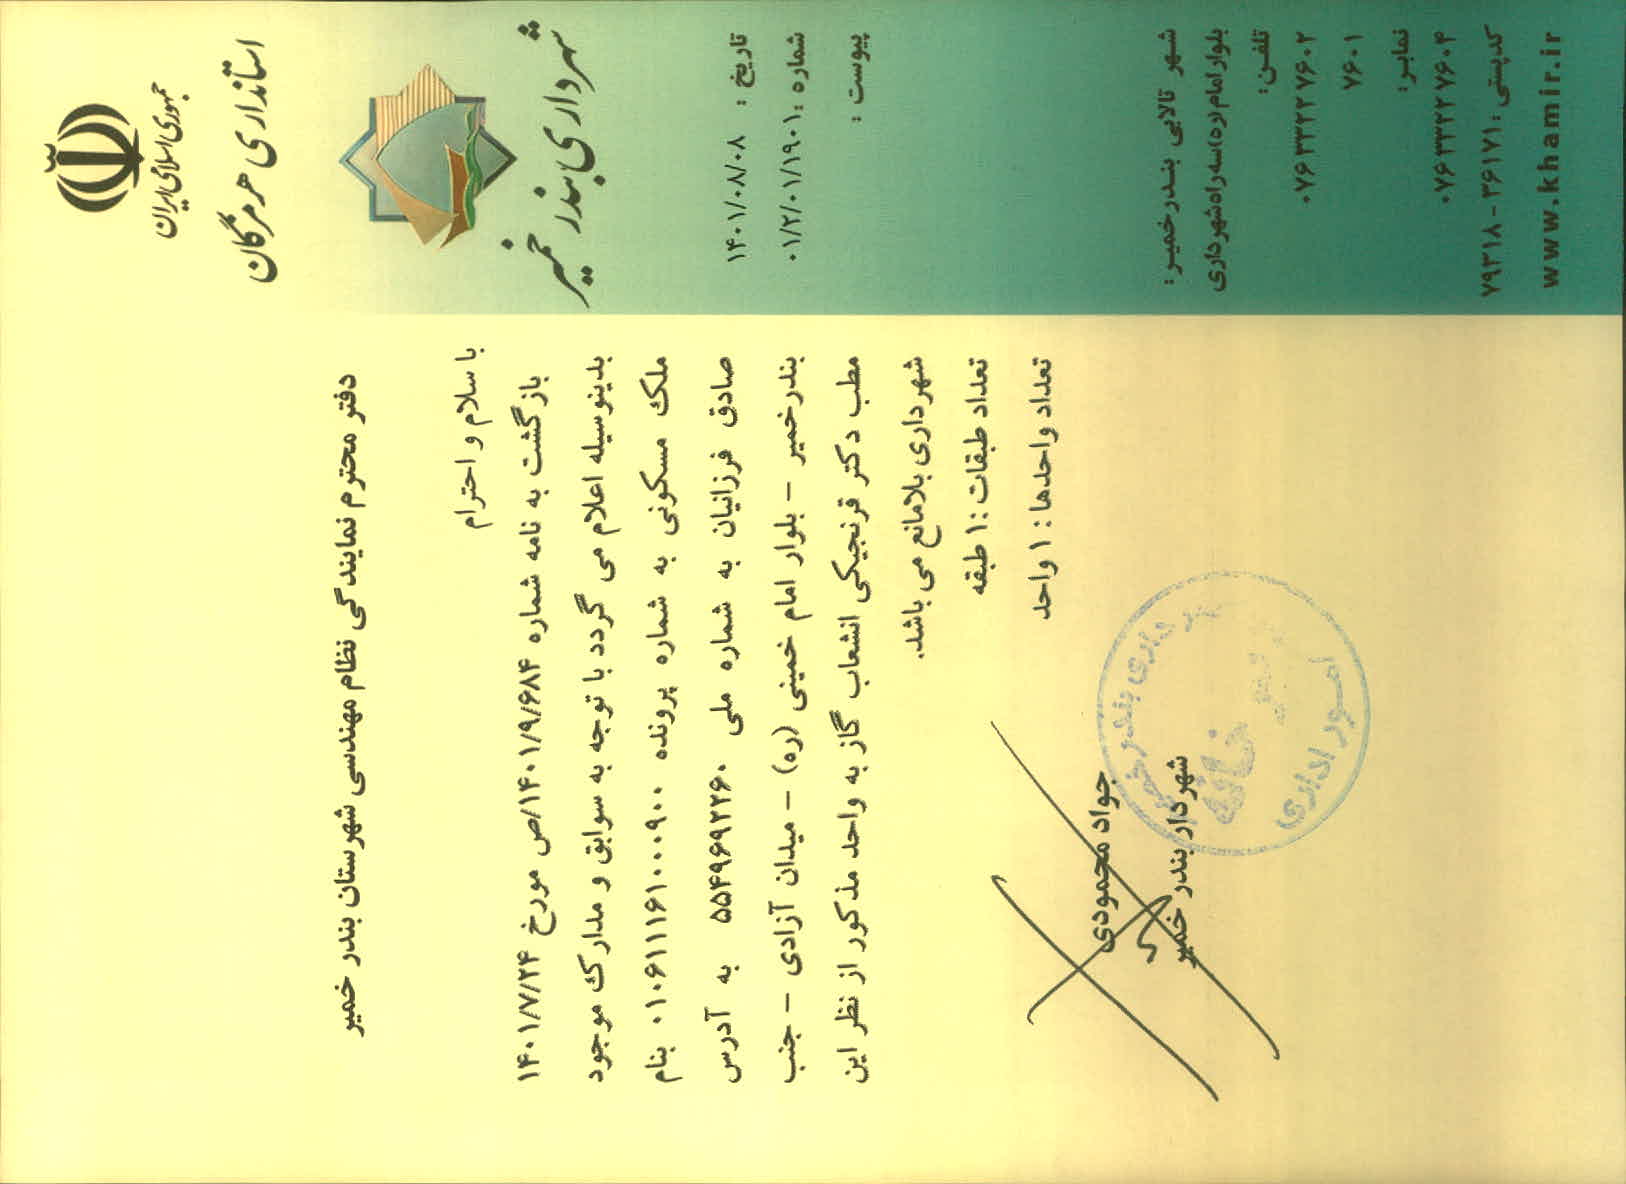 جمهوری اسلامی ایران
استانداری هرمزگان
شهرداری بندر خمیر
تاریخ : ۱۴۰۱/۰۸/۰۸
شماره : ۰۱/۲/۰۱/۱۹۰۱
پیوست :
شهر تالابی بندرخمیر :
بلوار امام (ره) سه راه شهرداری
تلفن:
۰۷۶۳۳۲۲۷۶۰۲
۷۶۰۱
نمابر:
۰۷۶۳۳۲۲۷۶۰۴
کدپستی : ۳۶۱۷۱ - ۷۹۳۱۸
www.khamir.ir
دفتر محترم نمایندگی نظام مهندسی شهرستان بندر خمیر
با سلام و احترام
بازگشت به نامه شماره ۱۴۰۱/۹/۶۸۴/ص مورخ ۱۴۰۱/۷/۲۴
بدینوسیله اعلام می گردد با توجه به سوابق و مدارک موجود
ملک مسکونی به شماره پرونده ۰۱۰۶۱۱۱۶۱۰۰۰۹۰۰ بنام
صادق فرزانیان به شماره ملی ۵۵۴۹۶۹۲۲۶۰ به آدرس
بندرخمیر - بلوار امام خمینی (ره) - میدان آزادی - جنب
مطب دکتر قرنجیکی انشعاب گاز به واحد مذکور از نظر این
شهرداری بلامانع می باشد.
تعداد طبقات : ۱ طبقه
تعداد واحدها : ۱ واحد
جواد محمودی
شهردار بندر خمیر
شهرداری بندر خمیر
خانه
امور اداری